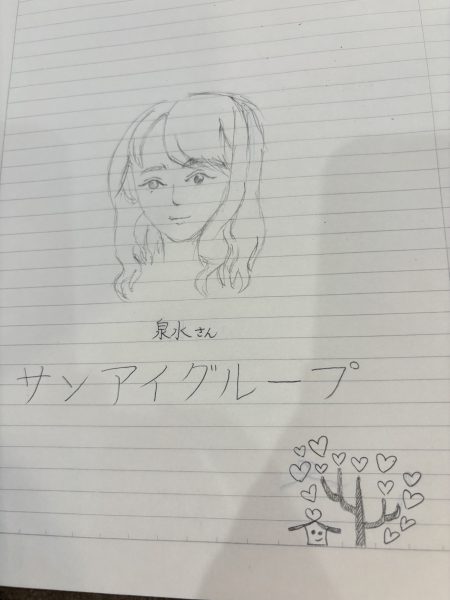 泉水さん
サンアイグループ